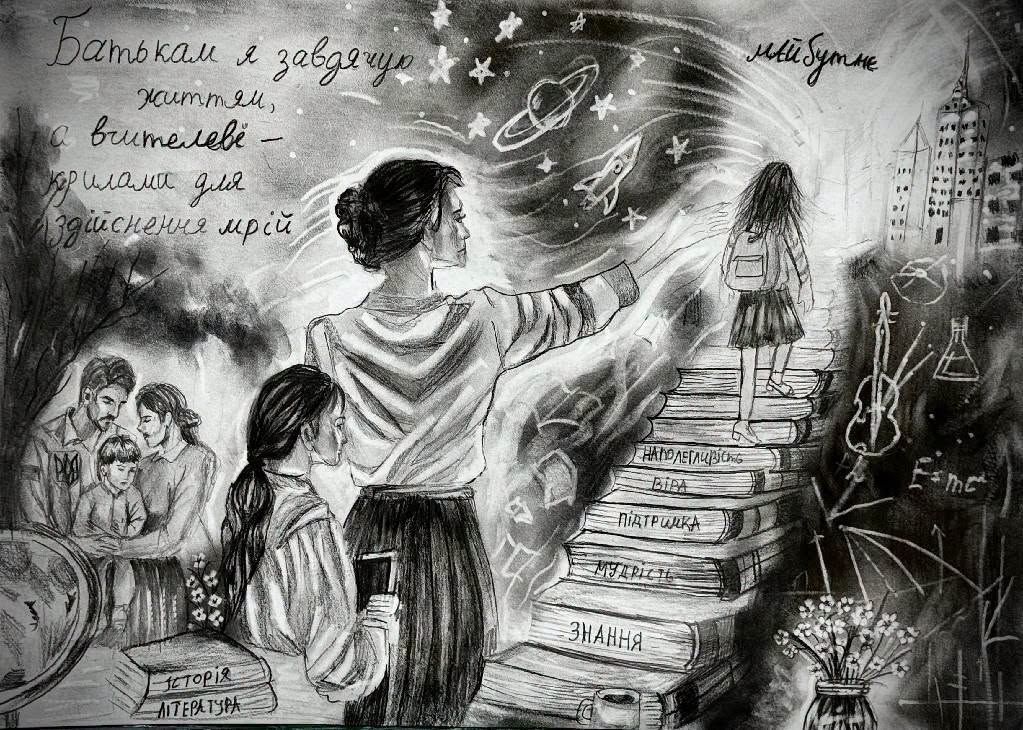 Батькам я завдячую
життям,
а вчителеві –
крилами для
здійснення мрій
майбутнє
НАПОЛЕГЛИВІСТЬ
ВІРА
ПІДТРИМКА
МУДРІСТЬ
ЗНАННЯ
E=mc²
ІСТОРІЯ
ЛІТЕРАТУРА